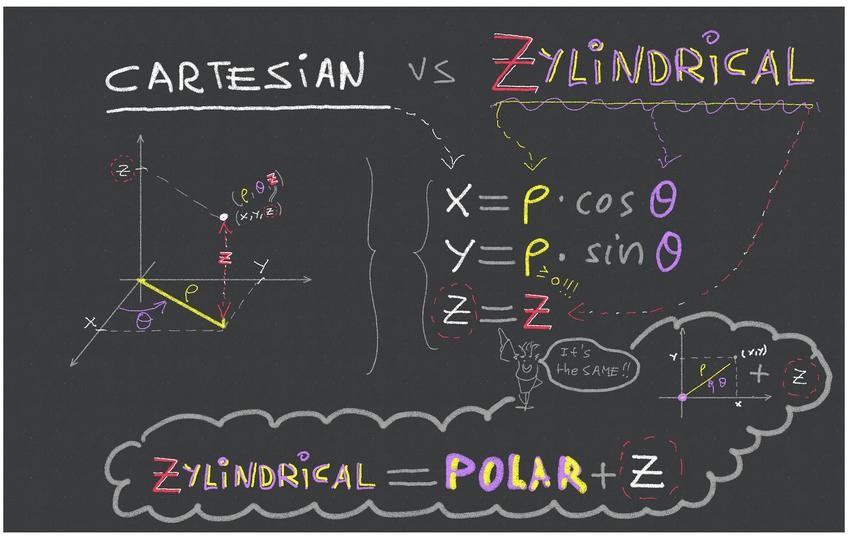 CARTESiAN vs ZYLiNDRiCAL
Z
(ρ, θ, Z)
(X,Y,Z)
Z
Y
ρ
X
θ
X = ρ · cos θ
Y = ρ · sin θ
≥0!!!
Z = Z
It's
the SAME!!
Y
(X,Y)
ρ
θ
X
+ Z
ZYLiNDRiCAL = POLAR + Z